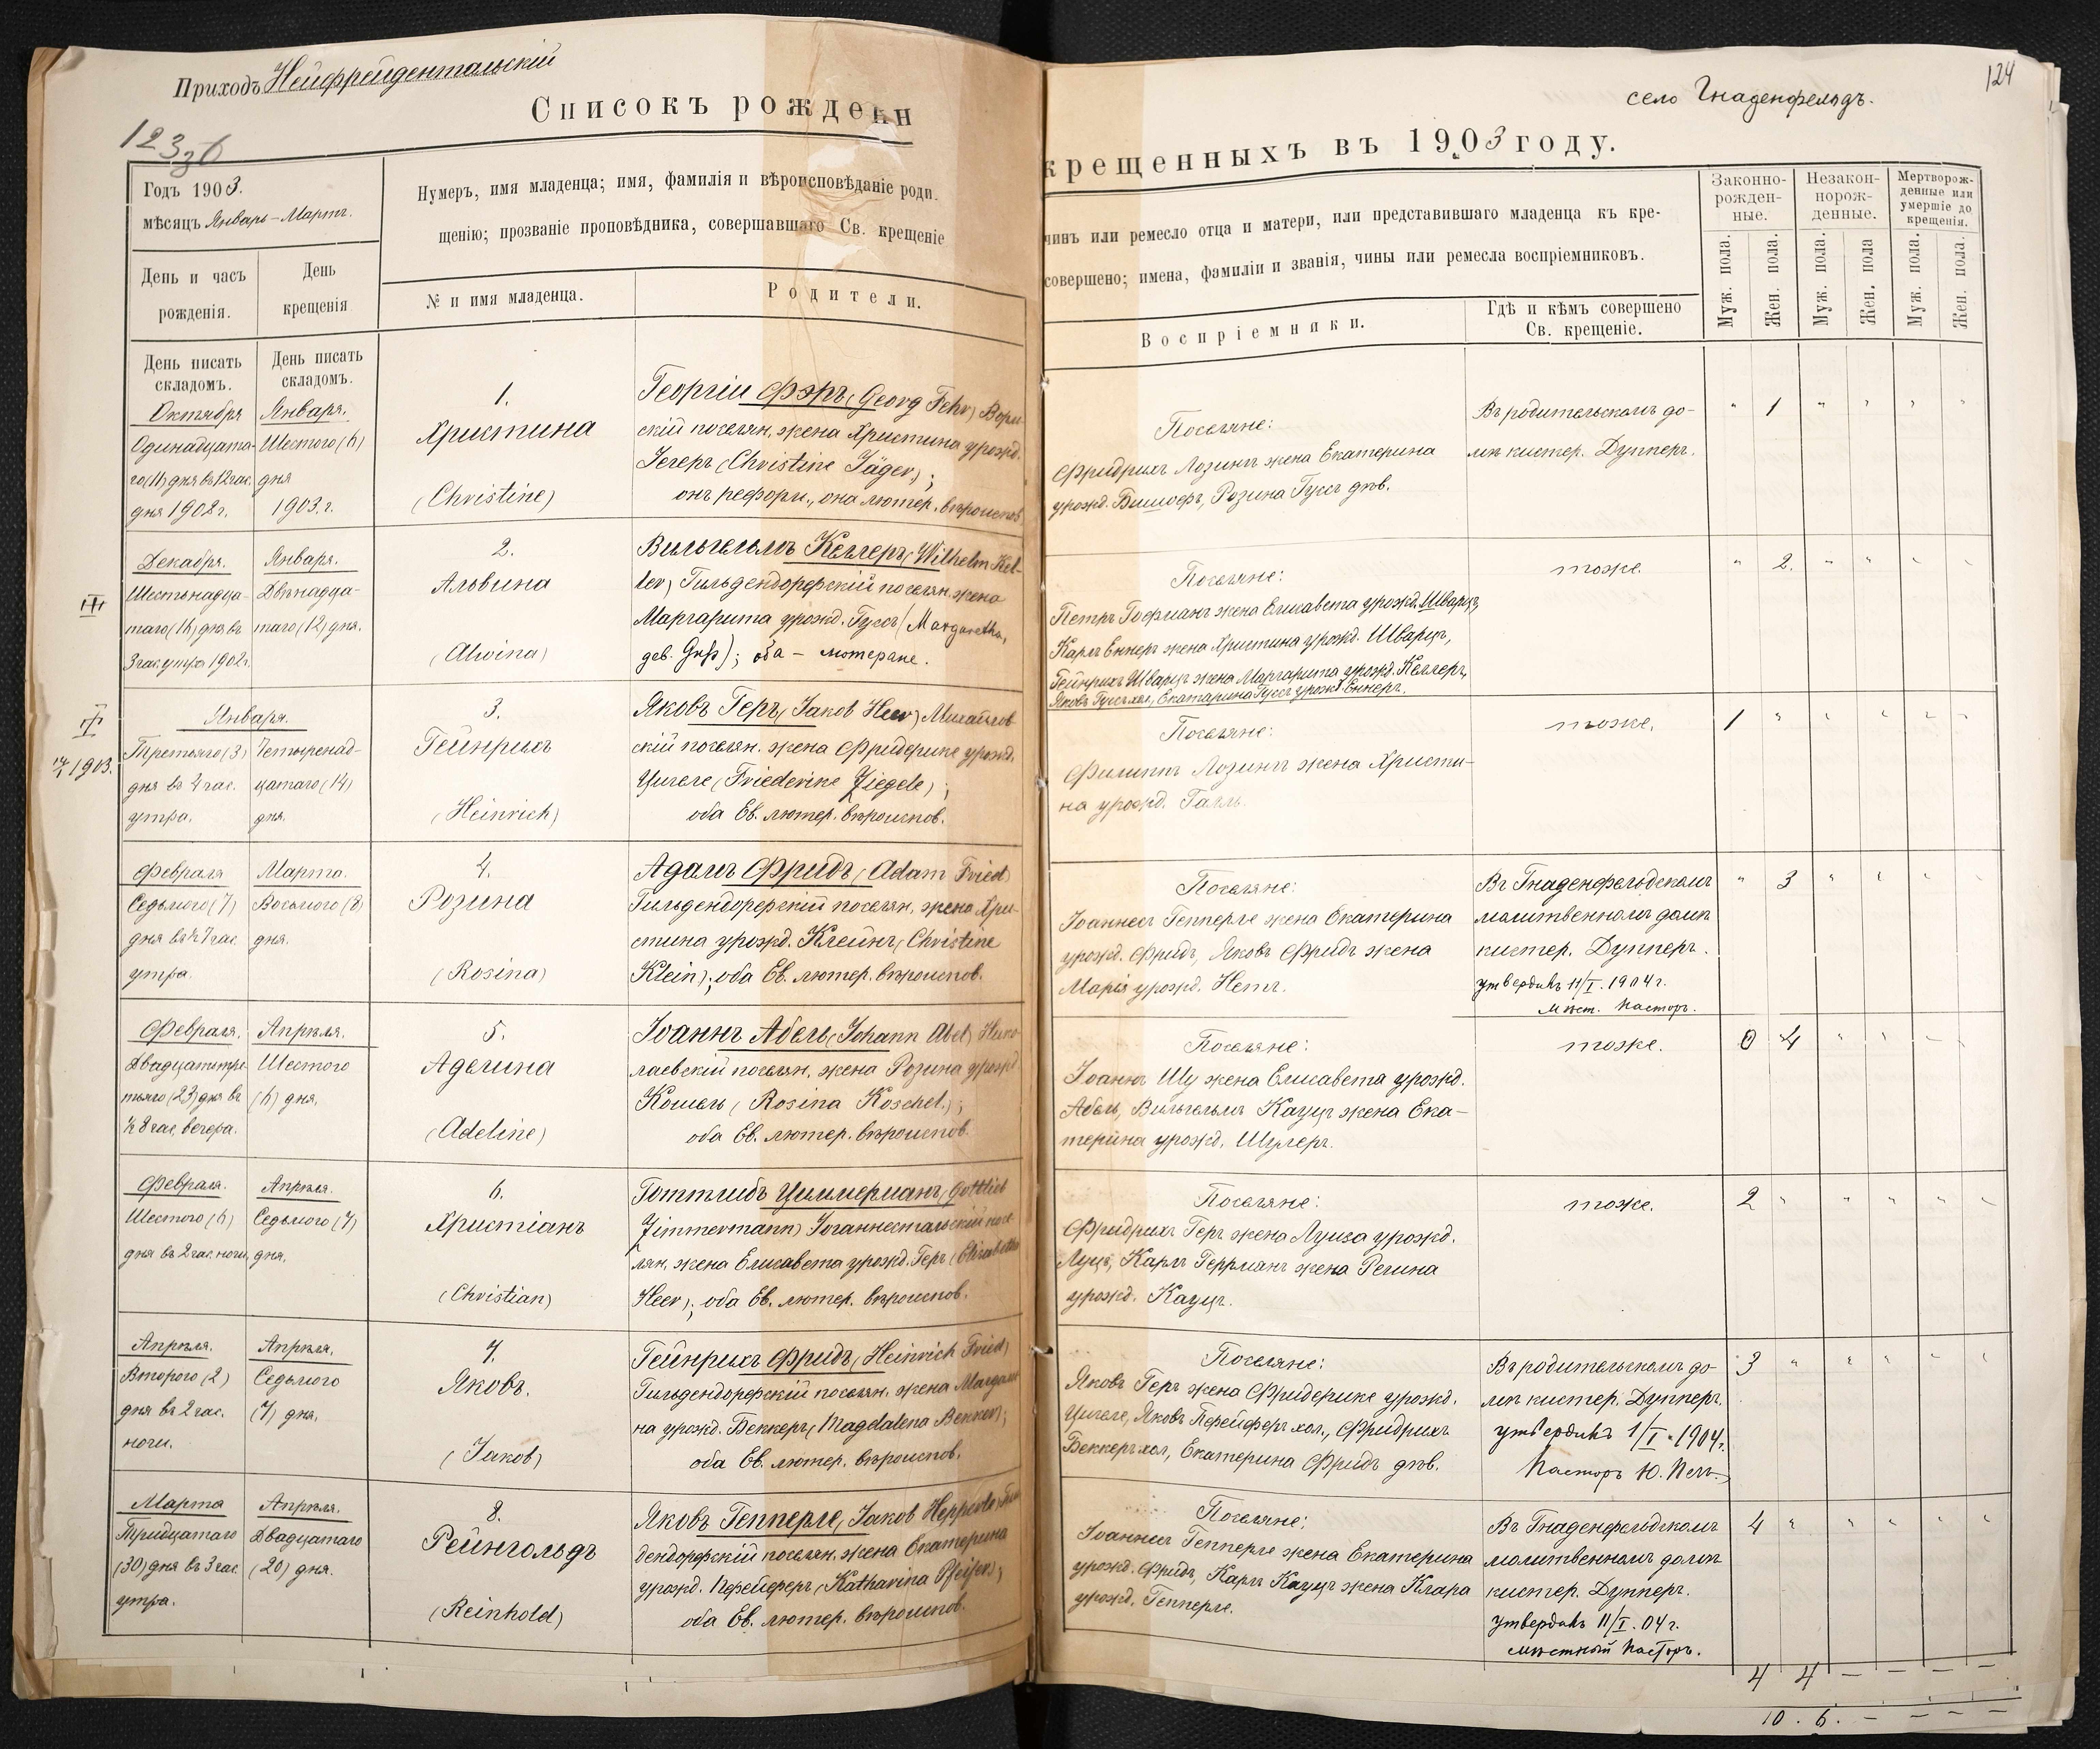 Приходъ Нейфрейдентальскій
Списокъ рожденн
123 об
Годъ 1903.
мѣсяцъ Январь – Мартъ.
Нумеръ, имя младенца; имя, фамилія и вѣроисповѣданіе роди.
щенію; прозваніе проповѣдника, совершавшаго Св. крещеніе
День и часъ
рожденія.
День
крещенія
№ и имя младенца.
Родители.
День писать
складомъ.
День писать
складомъ.
Октября
Одинадцата-
го (11) дня въ 12 час.
дня 1902 г.
Января.
Шестого (6)
дня
1903. г.
1.
Христина
(Christine)
Георгій Фэръ (Georg Fehr)
скій поселян. жена Христина урожд.
Іегеръ (Christine Jäger);
онъ реформ., она лютер. вѣроиспов.
Декабря.
Шестьнадца-
таго (16) дня въ
3 час. утра 1902 г.
Января.
Двѣнадца-
таго (12) дня.
2.
Альвина
(Alwina)
Вильгельмъ Келлеръ (Wilhelm Kel-
ler) Гильдендорфскій поселян. жена
Маргарита урожд. Гуссъ (Margaretha,
geb. Guß); оба – лютеране.
Января.
Третьяго (3)
дня въ 4 час.
утра.
Четыренад-
цатаго (14)
дня.
3.
Гейнрихъ
(Heinrich)
Яковъ Геръ (Jakob Heer) Михайлов-
скій поселян. жена Фридерике урожд.
Цигеле (Friederine Ziegele);
оба Ев. лютер. вѣроиспов.
1903.
Февраля
Седьмого (7)
дня въ ½ 7 час.
утра.
Марта.
Восьмого (8)
дня.
4.
Розина
(Rosina)
Адамъ Фридъ (Adam Fried)
Гильдендорфскій поселян. жена Хри-
стина урожд. Клейнъ (Christine
Klein); оба Ев. лютер. вѣроиспов.
Февраля.
Двадцатьтре-
тьяго (23) дня въ
½ 8 час. вечера.
Апрѣля.
Шестого
(6) дня.
5.
Аделина
(Adeline)
Іоаннъ Абель (Johann Abel) Нико-
лаевскій поселян. жена Розина урожд.
Кошель (Rosina Koschel.);
оба Ев. лютер. вѣроиспов.
Февраля.
Шестого (6)
дня въ 2 час. ночи.
Апрѣля.
Седьмого (7)
дня.
6.
Христіанъ
(Christian)
Готтлибъ Циммерманъ (Gottlieb
Zimmermann) Іоганнестальскій посе-
лян. жена Елисавета урожд. Геръ (Elisabetha
Heer); оба Ев. лютер. вѣроиспов.
Апрѣля.
Второго (2)
дня въ 2 час.
ночи.
Апрѣля.
Седьмого
(7) дня.
7.
Яковъ.
(Jakob)
Гейнрихъ Фридъ (Heinrich Fried)
Гильдендорфскій поселян. жена
на урожд. Беккеръ (Magdalena Bekker);
оба Ев. лютер. вѣроиспов.
Марта
Тридцатаго
(30) дня въ 3 час.
утра.
Апрѣля.
Двадцатаго
(20) дня.
8.
Рейнгольдъ
(Reinhold)
Яковъ Гепперле (Jakob Hepperle)
дендорфскій поселян. жена Екатерина
урожд. Пфейферъ (Katharina Pfeifer);
оба Ев. лютер. вѣроиспов.
124
село Гнаденфельдъ.
крещенныхъ въ 1903 году.
чинъ или ремесло отца и матери, или представившаго младенца къ кре-
совершено; имена, фамиліи и званія, чины или ремесла воспріемниковъ.
Воспріемники.
Гдѣ и кѣмъ совершено
Св. крещеніе.
Законно-
рожден-
ные.
Незакон-
норож-
денные.
Мертворож-
денные или
умершіе до
крещенія.
Муж. пола.
Жен. пола.
Муж. пола.
Жен. пола
Муж. пола.
Жен. пола.
Поселяне:
Фридрихъ Лозингъ жена Екатерина
урожд. Бишофъ, Розина Гуссъ дѣв.
Въ родительскомъ до-
мѣ кистер. Дупперъ.
" 1 " " " "
Поселяне:
Петръ Гофманъ жена Елисавета урожд. Шварцъ,
Карлъ Еннеръ жена Христина урожд. Шварцъ,
Гейнрихъ Шварцъ жена Маргарита урожд. Келлеръ,
Яковъ Гуссъ хол., Екатарина Гуссъ урожд. Еннеръ.
тоже.
" 2. " " " "
Поселяне:
Филиппъ Лозингъ жена Христи-
на урожд. Галль.
тоже.
1 " " " " "
Поселяне:
Іоаннесъ Гепперле жена Екатерина
урожд. Фридъ, Яковъ Фридъ жена
Марія урожд. Нетъ.
Въ Гнаденфельдскомъ
молитвенномъ домѣ
кистер. Дупперъ.
утвердилъ 11/I. 1904 г.
мѣст. Пасторъ.
" 3 " " " "
Поселяне:
Іоаннъ Шу жена Елисавета урожд.
Абель, Вильгельмъ Кауцъ жена Ека-
терина урожд. Шулеръ.
тоже.
0 4 " " " "
Поселяне:
Фридрихъ Геръ жена Луиза урожд.
Луцъ, Карлъ Геррманъ жена Регина
урожд. Кауцъ.
тоже.
2 " " " " "
Поселяне:
Яковъ Геръ жена Фридерике урожд.
Цигеле, Яковъ Пфейферъ хол., Фридрихъ
Беккеръ хол., Екатерина Фридъ дѣв.
Въ родительскомъ до-
мѣ кистер. Дупперъ.
утвердилъ 1/I. 1904 г.
Пасторъ Ю.
3 " " " " "
Поселяне:
Іоаннесъ Гепперле жена Екатерина
урожд. Фридъ, Карлъ Кауцъ жена Клара
урожд. Гепперле.
Въ Гнаденфельдскомъ
молитвенномъ домѣ
кистер. Дупперъ.
утвердилъ 11/I. 04 г.
мѣстный Пасторъ.
4 " " " " "
4 4 – – – –
10. 6. – – – –